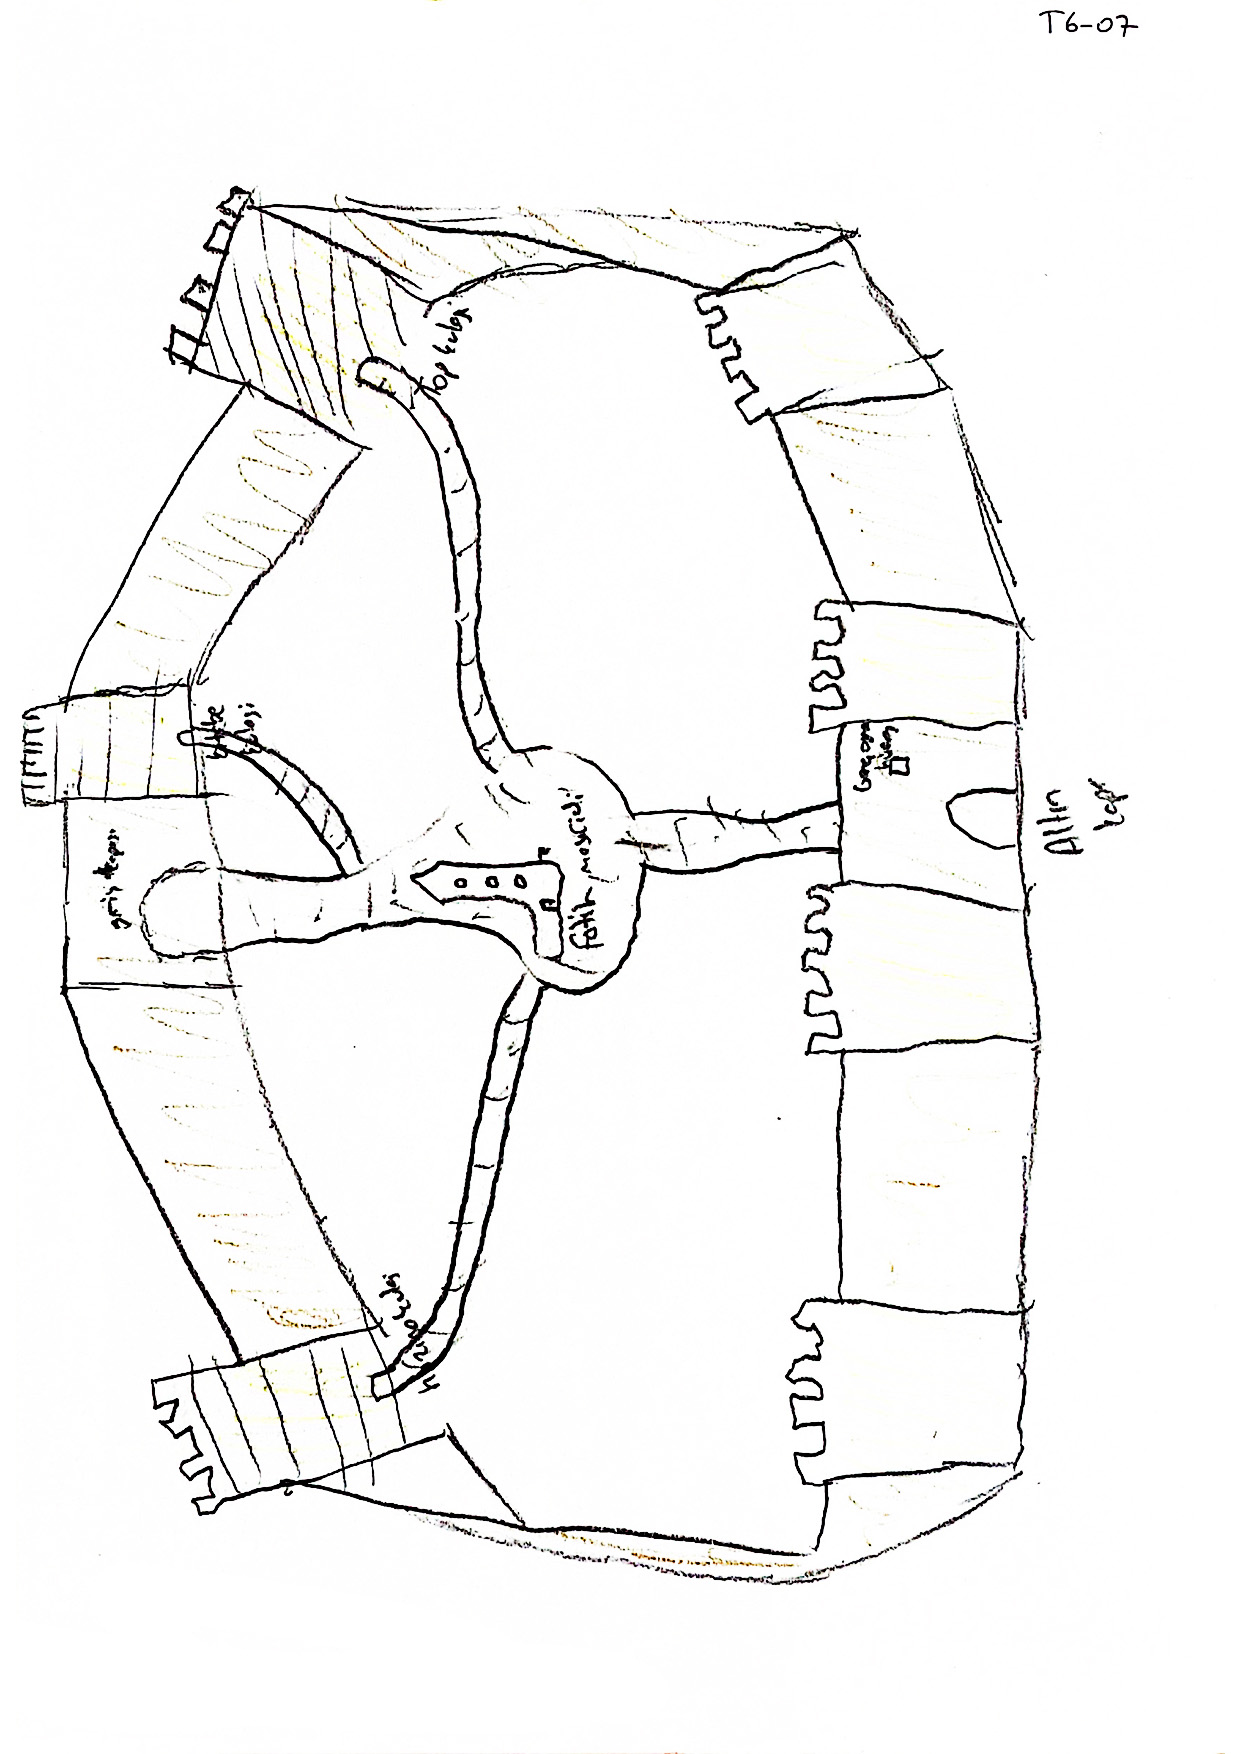 giriş kapısı
kitabe
kulesi
hazine kulesi
Top kulesi
fatih mescidi
Genç osman
kulesi
Altın
kapı
T6-07